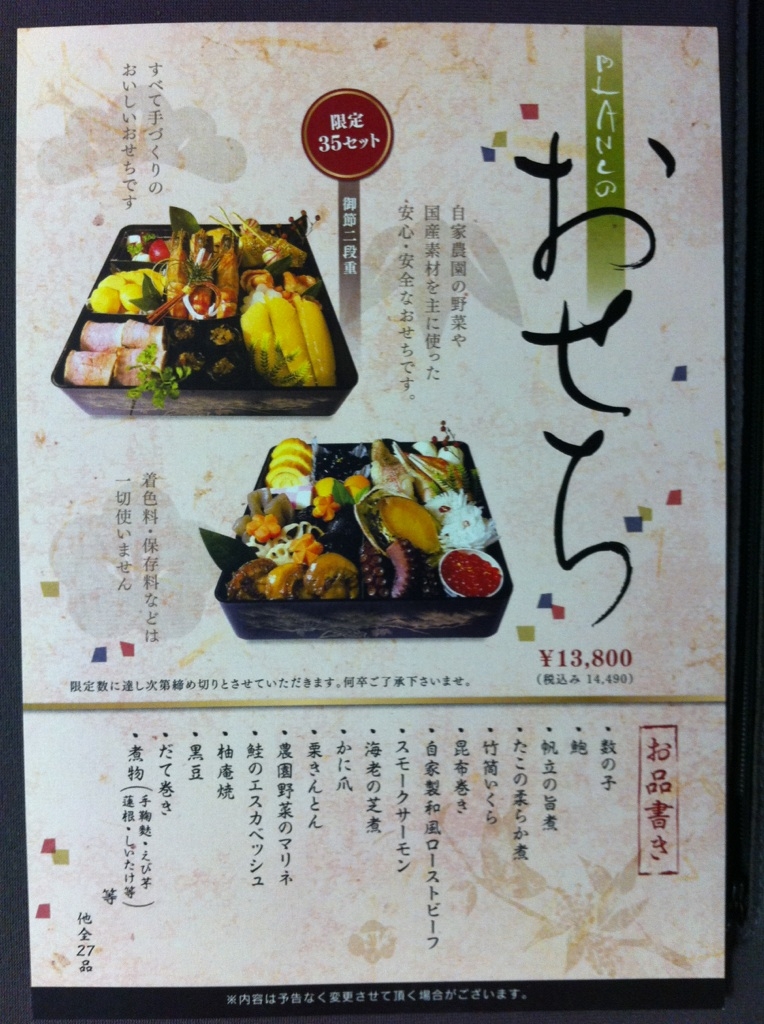 BLANCの
おせち
¥13,800
(税込み 14,490)
限定
35セット
御節二段重
自家農園の野菜や
国産素材を主に使った
安心・安全なおせちです。
すべて手づくりの
おいしいおせちです
着色料・保存料などは
一切使いません
限定数に達し次第締め切りとさせていただきます。何卒ご了承下さいませ。
お品書き
・数の子
・鮑
・帆立の旨煮
・たこの柔らか煮
・竹筒いくら
・昆布巻き
・自家製和風ローストビーフ
・スモークサーモン
・海老の芝煮
・かに爪
・栗きんとん
・農園野菜のマリネ
・鮭のエスカベッシュ
・柚庵焼
・黒豆
・だて巻き
・煮物(手鞠麩・えび芋
蓮根・しいたけ等)
等
他全27品
※内容は予告なく変更させて頂く場合がございます。